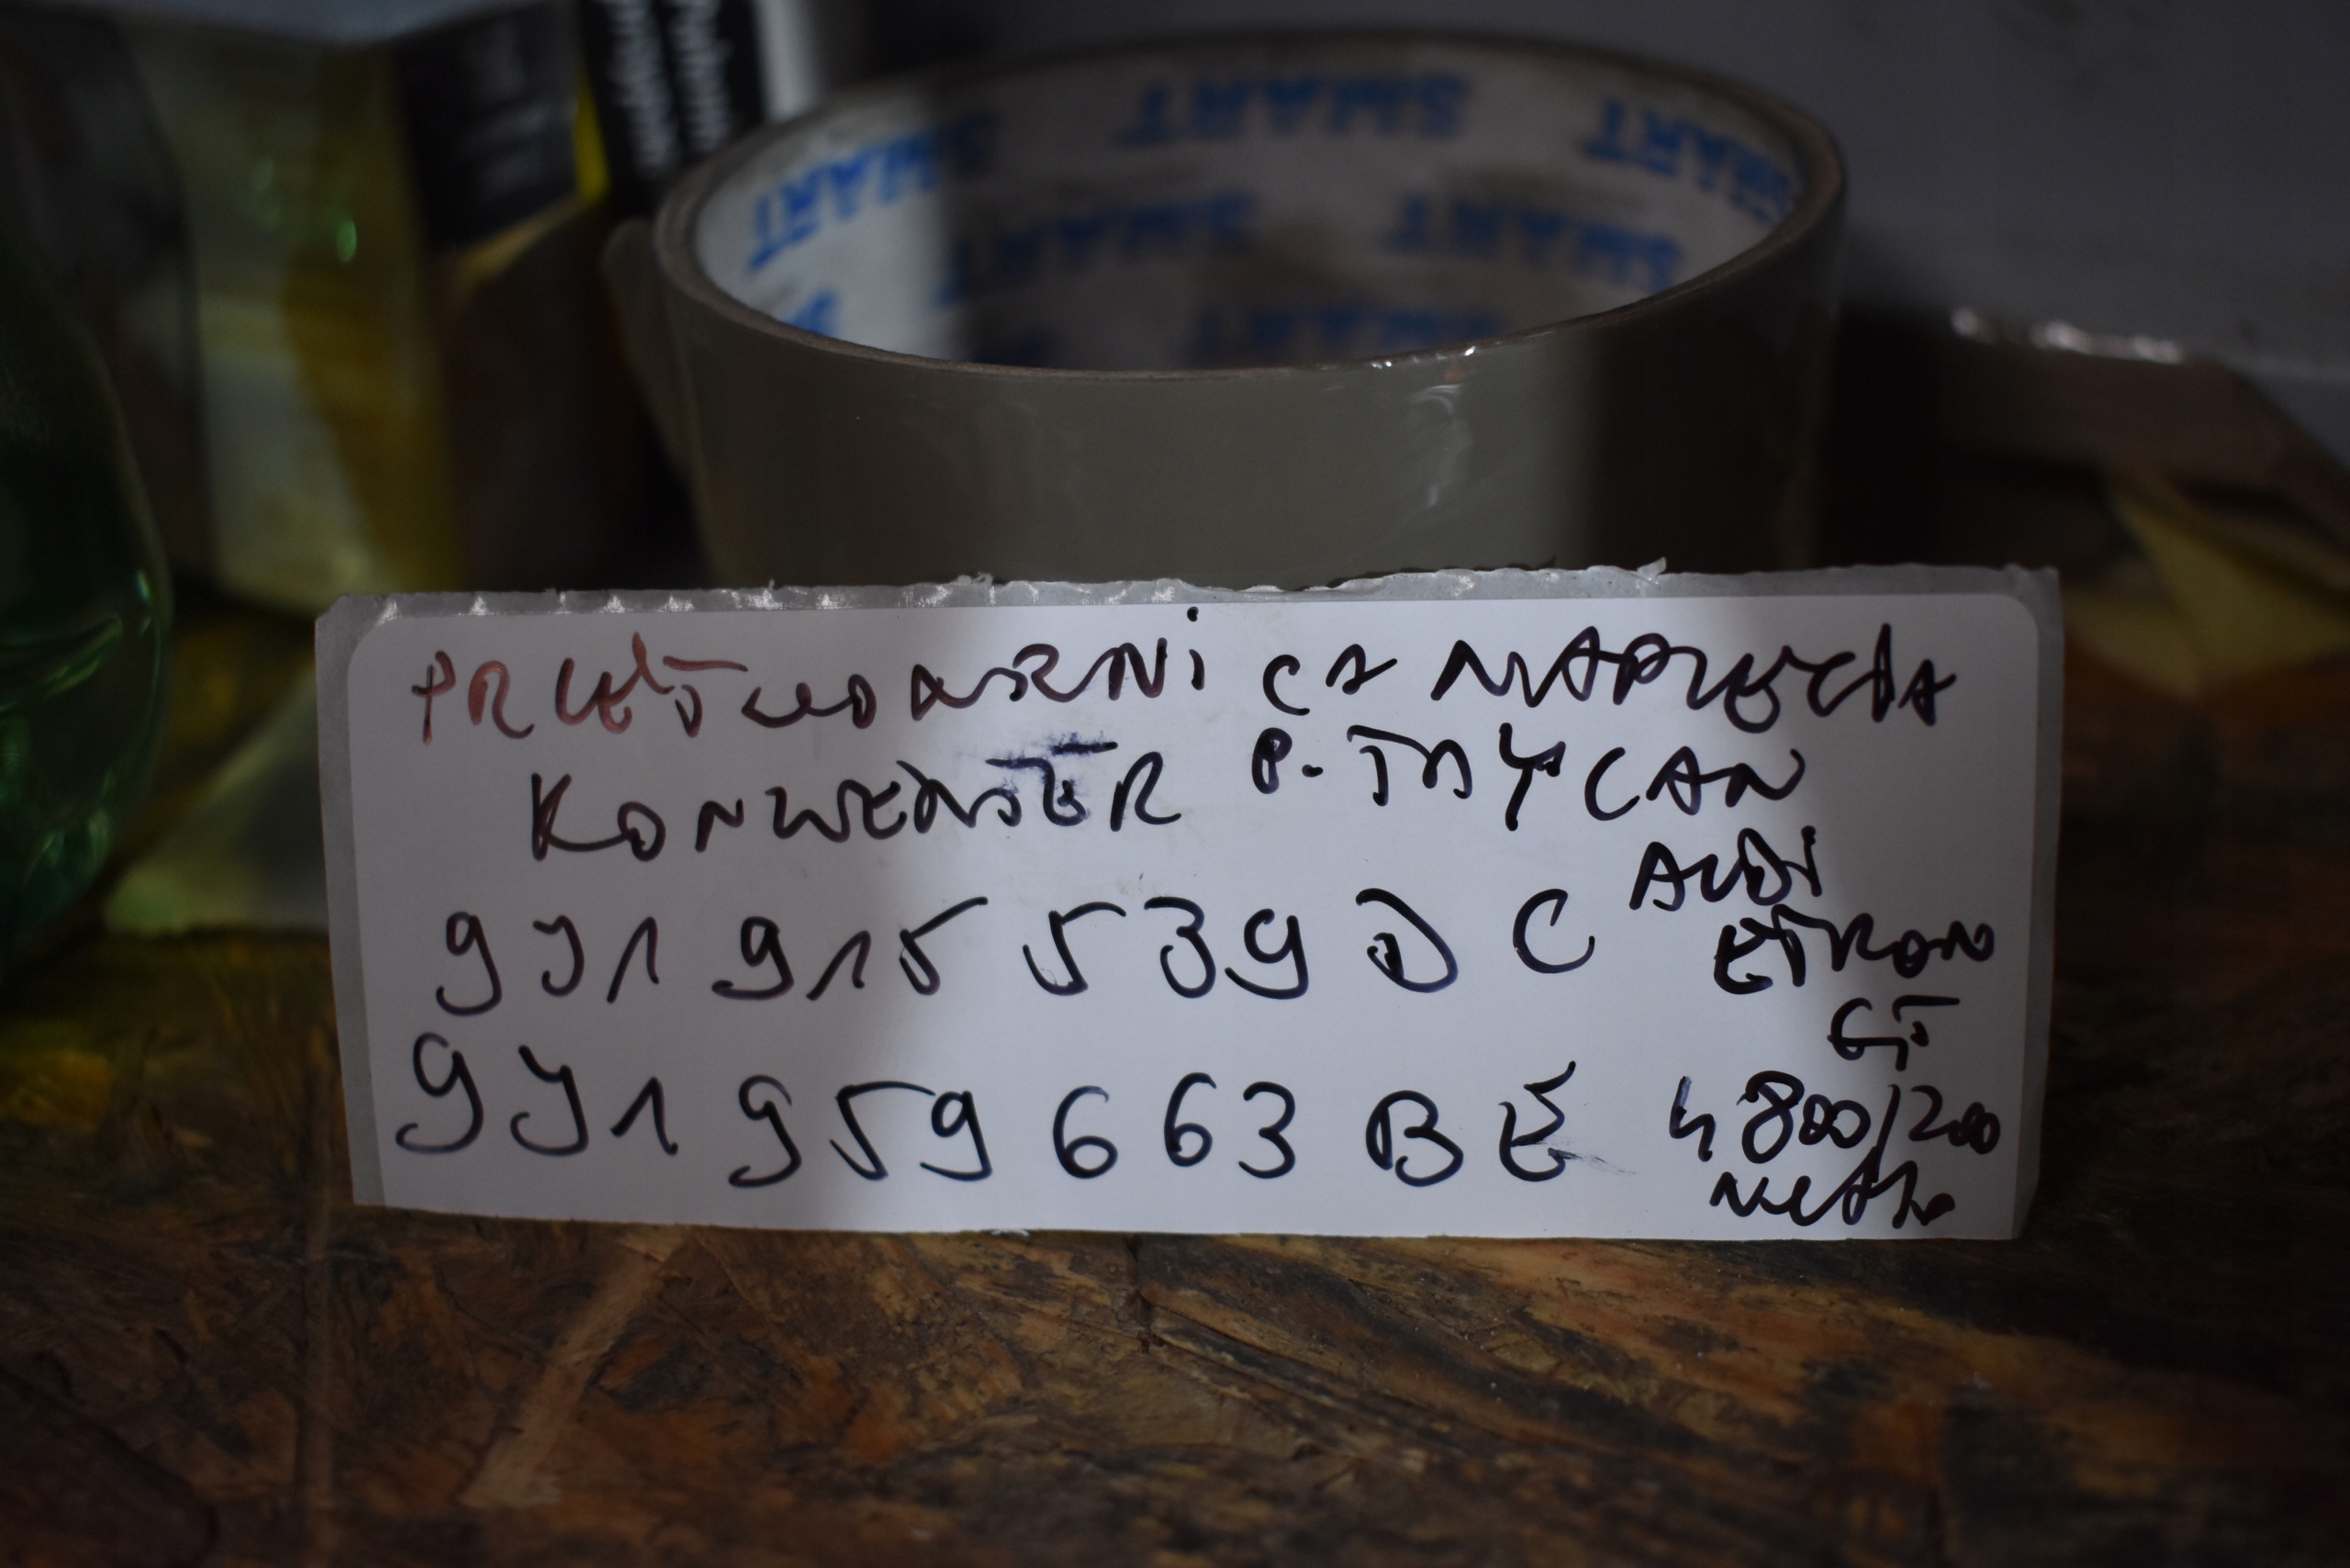 SMART SMART SMART
SMART SMART
SMART
PRZETWORNICA NAPIĘCIA
KONWERTER P. TAYCAN
AUDI
ETRON
GT
9J1 915 539 D C
9J1 959 663 BE
4800/200
netto